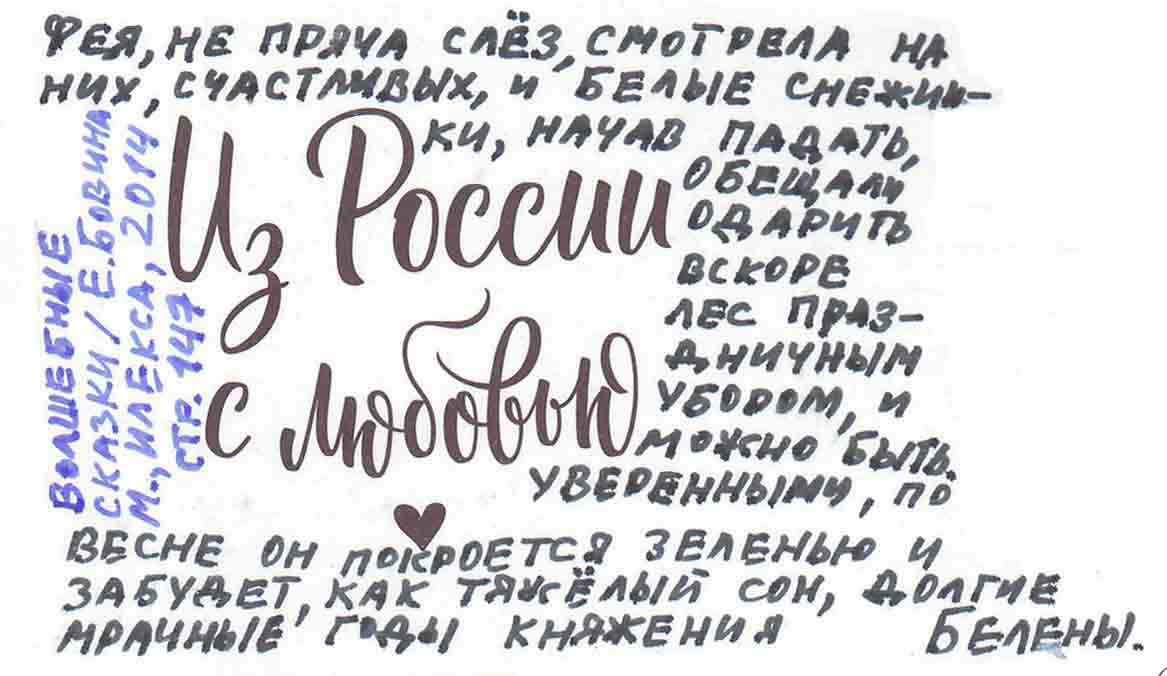 ФЕЯ, НЕ ПРЯЧА СЛЁЗ, СМОТРЕЛА НА
НИХ, СЧАСТЛИВЫХ, И БЕЛЫЕ СНЕЖИН-
КИ, НАЧАВ ПАДАТЬ,
ОБЕЩАЛИ
ОДАРИТЬ
ВСКОРЕ
ЛЕС ПРАЗ-
ДНИЧНЫМ
УБОРОМ, И
МОЖНО БЫТЬ
УВЕРЕННЫМИ, ПО
ВЕСНЕ ОН ПОКРОЕТСЯ ЗЕЛЕНЬЮ И
ЗАБУДЕТ, КАК ТЯЖЁЛЫЙ СОН, ДОЛГИЕ
МРАЧНЫЕ ГОДЫ КНЯЖЕНИЯ БЕЛЕНЫ.
Из России
с любовью
ВОЛШЕБНЫЕ
СКАЗКИ / Е. БОВИНА
М., ИЛЕКСА, 2014
СТР. 147